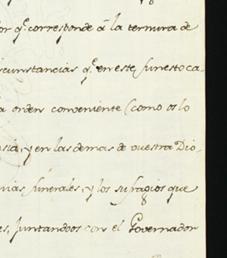 or q.e corresponde á la ternura de
cunstancias q.e en este funesto ca-
a orden conveniente (como os lo
sia, y en las demas de vuestra Dio-
funerales, y los sufragios que
es, juntandoos con el Governador